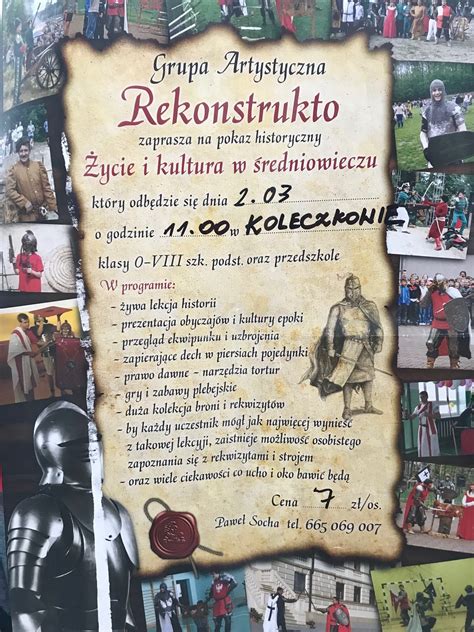 Grupa Artystyczna
Rekonstrukto
zaprasza na pokaz historyczny
Życie i kultura w średniowieczu
który odbędzie się dnia 2.03
o godzinie 11.00 w KOLECZKOWIE
klasy 0-VIII szk. podst. oraz przedszkole
W programie:
- żywa lekcja historii
- prezentacja obyczajów i kultury epoki
- przegląd ekwipunku i uzbrojenia
- zapierające dech w piersiach pojedynki
- prawo dawne - narzędzia tortur
- gry i zabawy plebejskie
- duża kolekcja broni i rekwizytów
- by każdy uczestnik mógł jak najwięcej wynieść
z takowej lekcyji, zaistnieje możliwość osobistego
zapoznania się z rekwizytami i strojem
- oraz wiele ciekawości co ucho i oko bawić będą
Cena 7 zł/os.
Paweł Socha tel. 665 069 007